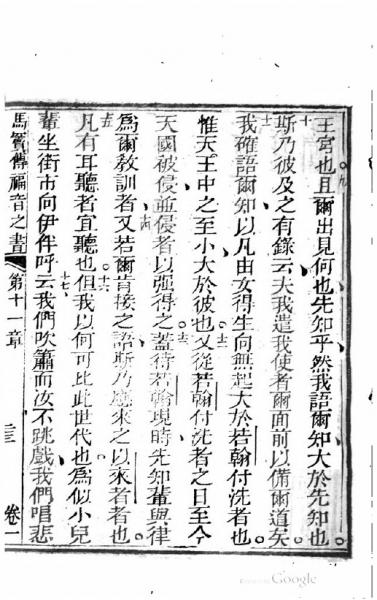 王宮也且爾出見何也先知乎然我語爾知大於先知也
斯乃彼及之有錄云夫我遣我使者爾面前以備爾道矣
我確語爾知以凡由女得生向無起大於若翰付洗者也
惟天王中之至小大於彼也又從若翰付洗者之日至今
天國被侵並侵者以強得之蓋待若翰現時先知輩與律
為爾教訓者又若爾肯接之語斯乃應來之以來者者也
凡有耳聽者宜聽也但我以何可比此世代也為似小兒
輩坐街市向伊伴呼云我們吹簫而汝不跳戲我們唱悲
馬竇傳福音之書 第十一章 卷一
Google